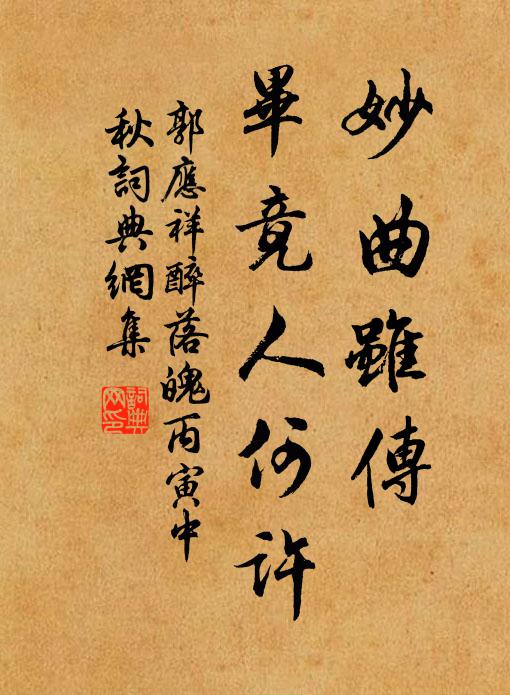 妙曲雖傳
畢竟人何許
郭應祥醉落魄丙寅中
秋詞典網集
詞典
網印